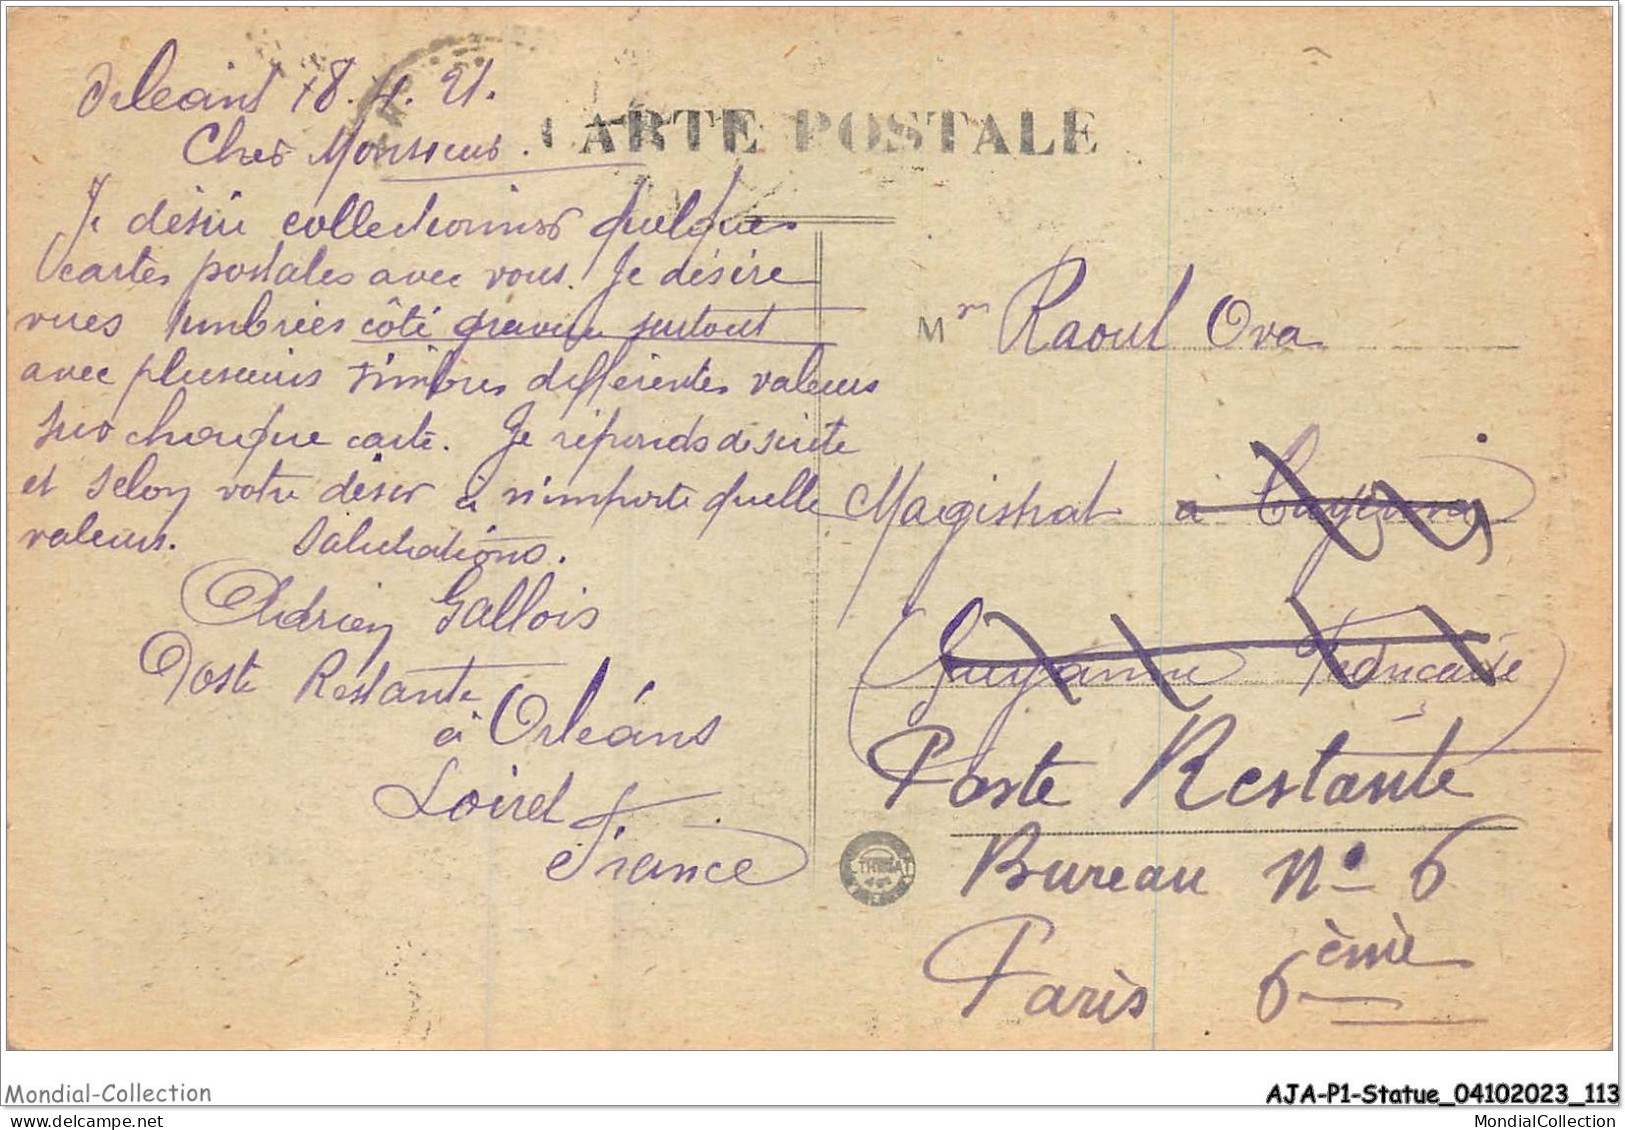 Orléans 18.4.21.
Cher Monsieur.
CARTE POSTALE
Je désire collectionner quelques
cartes postales avec vous. Je désire
vues timbrées côté gravure surtout
avec plusieurs timbres différentes valeurs
sur chaque carte. Je réponds de suite
et selon votre désir à n'importe quelle
valeur. Salutations.
Adrien Gallois
Poste Restante
à Orléans
Loiret
France
Mr Raoul Ova
Magistrat à Cayenne
Guyanne Française
Poste Restante
Bureau N° 6
Paris 6ème
Mondial-Collection
AJA-P1-Statue_04102023_113
MondialCollection